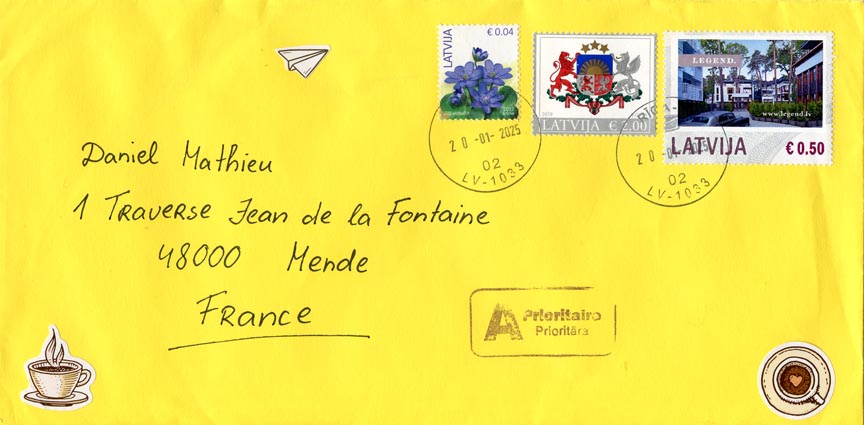 LATVIJA € 0.04
LATVIJA € 2.00
LEGEND.
www.legend.lv
LATVIJA € 0.50
20-01-2025
02
LV-1033
RĪGA
20-01-2025
02
LV-1033
Daniel Mathieu
1 Traverse Jean de la Fontaine
48000 Mende
France
A Prioritairo
Prioritāra